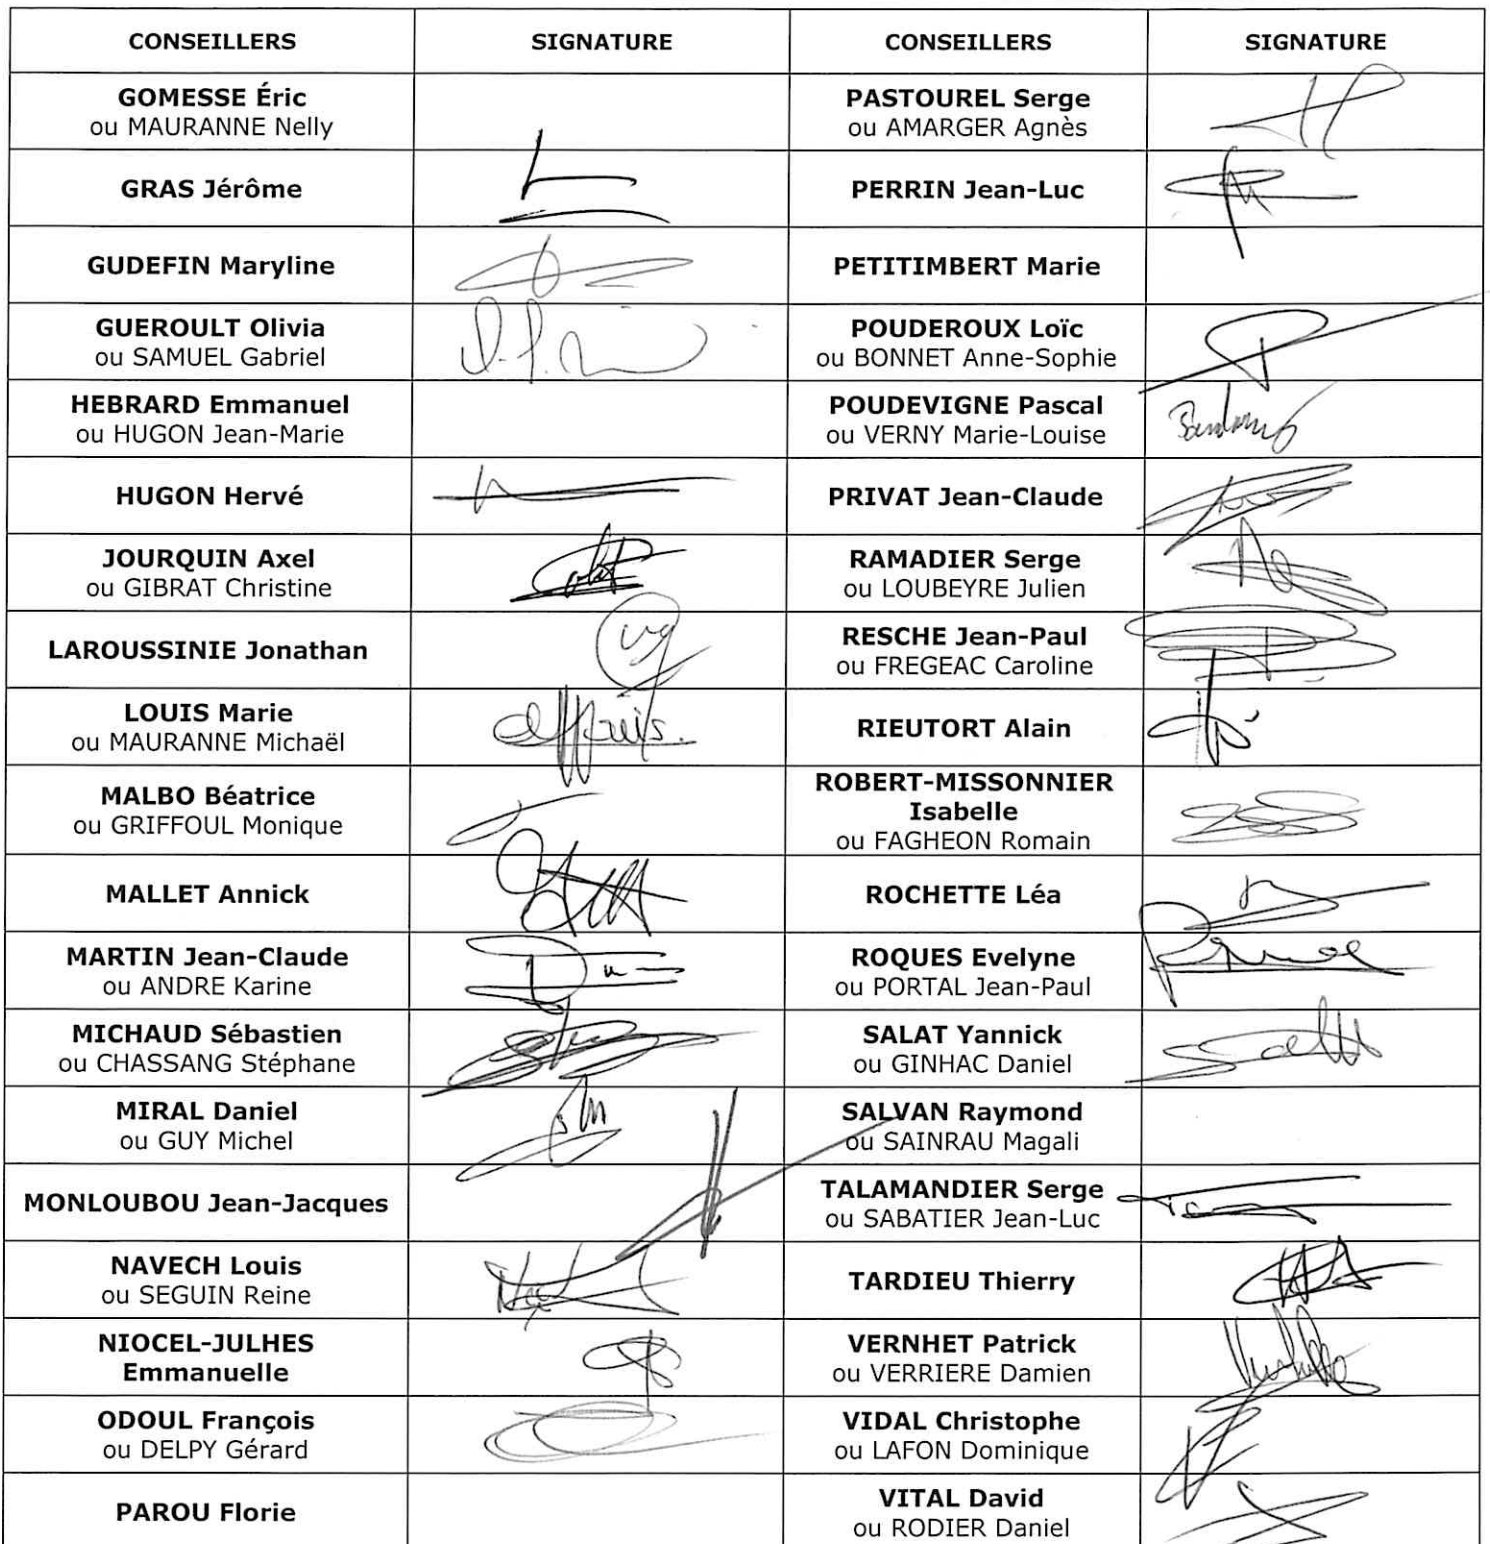 CONSEILLERS SIGNATURE CONSEILLERS SIGNATURE
GOMESSE Éric
ou MAURANNE Nelly
PASTOUREL Serge
ou AMARGER Agnès
GRAS Jérôme
PERRIN Jean-Luc
GUDEFIN Maryline
PETITIMBERT Marie
GUEROULT Olivia
ou SAMUEL Gabriel
POUDEROUX Loïc
ou BONNET Anne-Sophie
HEBRARD Emmanuel
ou HUGON Jean-Marie
POUDEVIGNE Pascal
ou VERNY Marie-Louise
HUGON Hervé
PRIVAT Jean-Claude
JOURQUIN Axel
ou GIBRAT Christine
RAMADIER Serge
ou LOUBEYRE Julien
LAROUSSINIE Jonathan
RESCHE Jean-Paul
ou FREGEAC Caroline
LOUIS Marie
ou MAURANNE Michaël
RIEUTORT Alain
MALBO Béatrice
ou GRIFFOUL Monique
ROBERT-MISSONNIER
Isabelle
ou FAGHEON Romain
MALLET Annick
ROCHETTE Léa
MARTIN Jean-Claude
ou ANDRE Karine
ROQUES Evelyne
ou PORTAL Jean-Paul
MICHAUD Sébastien
ou CHASSANG Stéphane
SALAT Yannick
ou GINHAC Daniel
MIRAL Daniel
ou GUY Michel
SALVAN Raymond
ou SAINRAU Magali
MONLOUBOU Jean-Jacques
TALAMANDIER Serge
ou SABATIER Jean-Luc
NAVECH Louis
ou SEGUIN Reine
TARDIEU Thierry
NIOCEL-JULHES
Emmanuelle
VERNHET Patrick
ou VERRIERE Damien
ODOUL François
ou DELPY Gérard
VIDAL Christophe
ou LAFON Dominique
PAROU Florie
VITAL David
ou RODIER Daniel